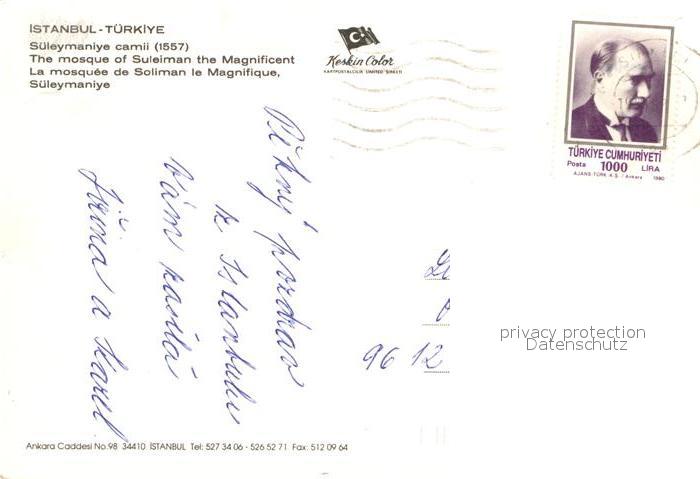 İSTANBUL - TÜRKİYE
Süleymaniye camii (1557)
The mosque of Suleiman the Magnificent
La mosquée de Soliman le Magnifique,
Süleymaniye
Keskin Color
KARTPOSTALCILIK LIMITED ŞİRKETİ
TÜRKİYE CUMHURİYETİ
Posta 1000 LİRA
AJANS-TÜRK A.Ş. / Ankara 1990
Pěkný pozdrav
z Istanbulu
vám zasílá
Jiřina a Karel
96 12
privacy protection
Datenschutz
Ankara Caddesi No.98 34410 İSTANBUL Tel: 527 34 06 - 526 52 71 Fax: 512 09 64